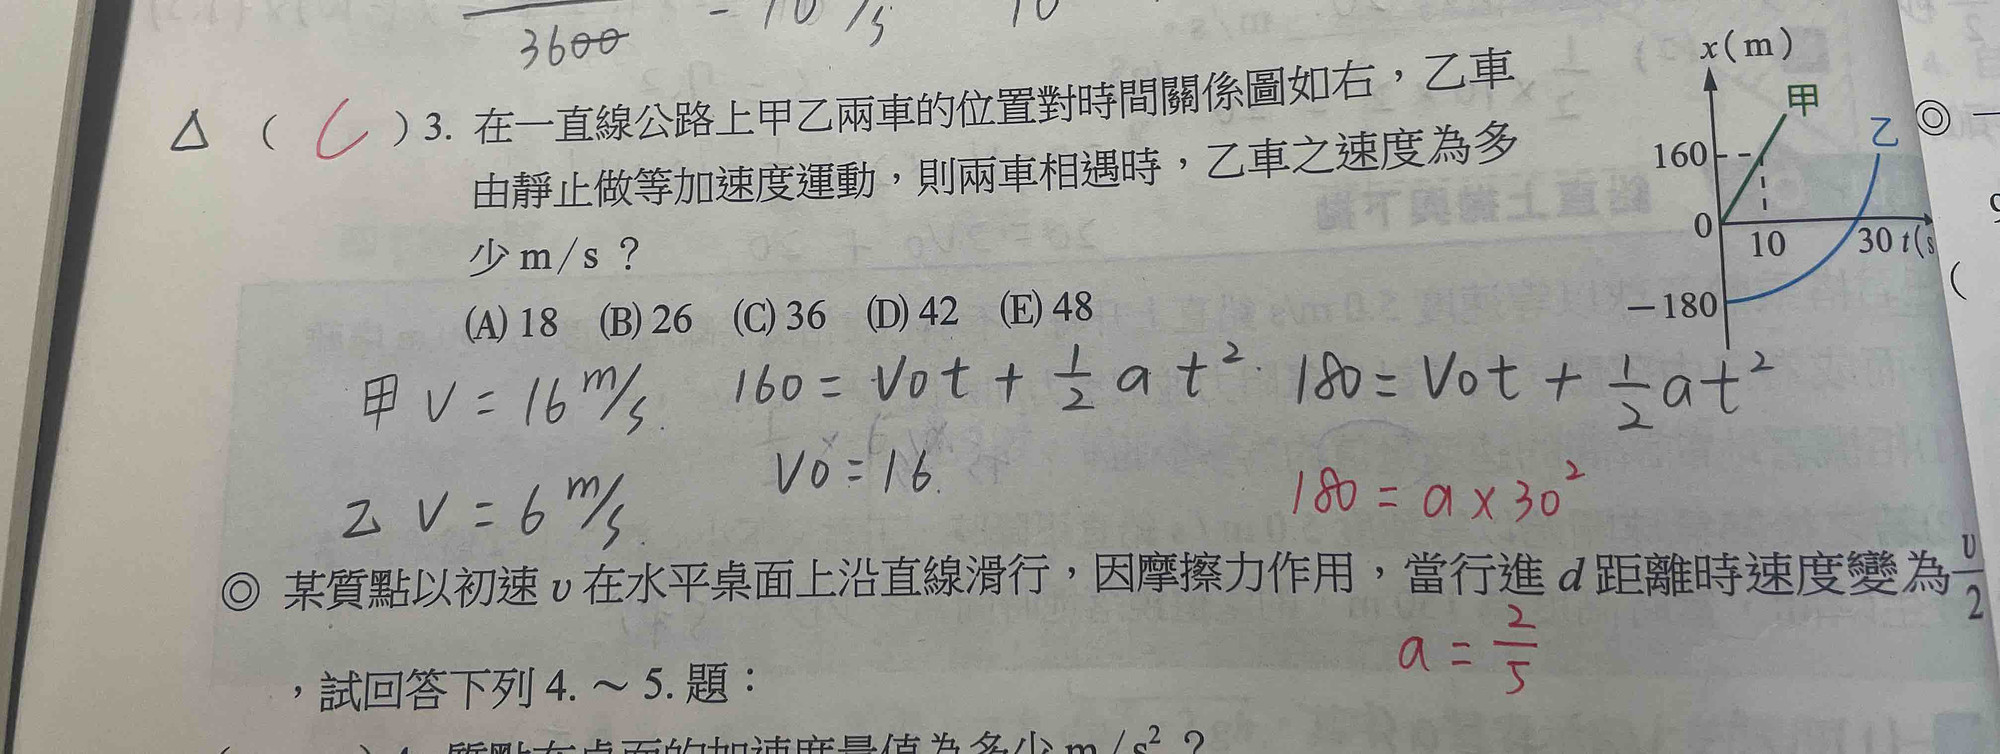 3600 = 10 m/s 10
△ ( C ) 3. 在一直線公路上甲乙兩車的位置對時間關係圖如右，乙車
由靜止做等加速度運動，則兩車相遇時，乙車之速度為多
少 m/s ？
(A) 18 (B) 26 (C) 36 (D) 42 (E) 48
x(m)
甲
乙
160
0
10
30 t(s
-180
◎
(
甲 V = 16 m/s.
160 = V0t + 1/2 at².
180 = V0t + 1/2 at²
V0 = 16.
乙 V = 6 m/s.
180 = a × 30²
◎ 某質點以初速 υ 在水平桌面上沿直線滑行，因摩擦力作用，當行進 d 距離時速度變為 υ/2
a = 2/5
，試回答下列 4. ～ 5. 題：
) 4. 質點在桌面的加速度量值為多少 m/s² ？